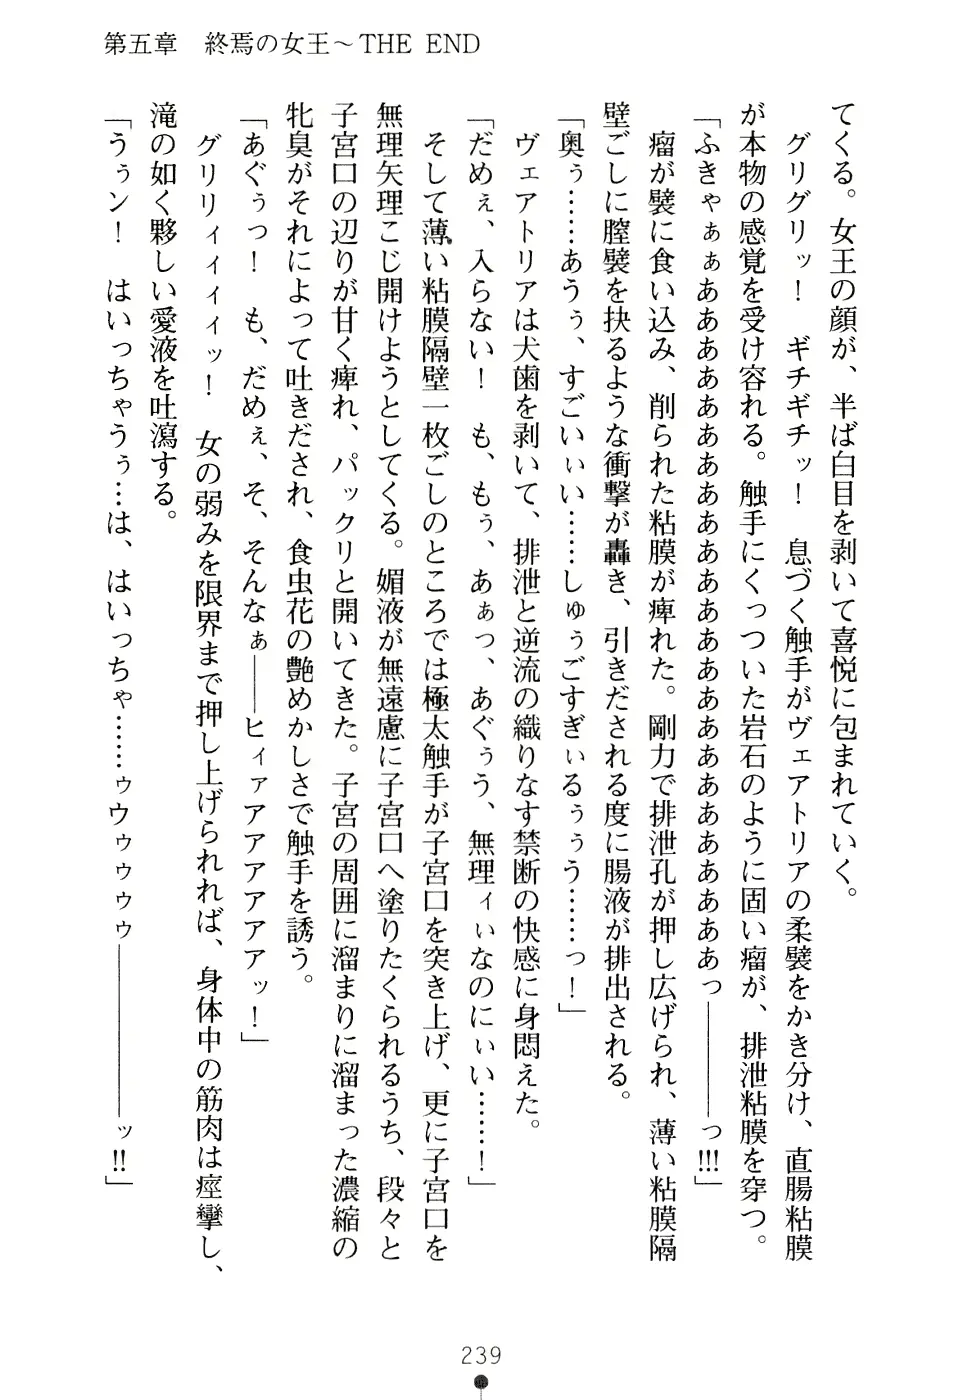 第五章　終焉の女王～THE END
てくる。女王の顔が、半ば白目を剥いて喜悦に包まれていく。
　グリグリッ！　ギチギチッ！　息づく触手がヴェアトリアの柔襞をかき分け、直腸粘膜
が本物の感覚を受け容れる。触手にくっついた岩石のように固い瘤が、排泄粘膜を穿つ。
「ふきゃぁぁああああああああああああああああああああっ――――っ!!!」
　瘤が襞に食い込み、削られた粘膜が痺れた。剛力で排泄孔が押し広げられ、薄い粘膜隔
壁ごしに膣襞を抉るような衝撃が轟き、引きだされる度に腸液が排出される。
「奥ぅ……あうぅ、すごいぃい……しゅぅごすぎぃるぅぅう……っ！」
　ヴェアトリアは犬歯を剥いて、排泄と逆流の織りなす禁断の快感に身悶えた。
「だめぇ、入らない！　も、もぅ、あぁっ、あぐぅう、無理ィぃなのにぃい……！」
　そして薄い粘膜隔壁一枚ごしのところでは極太触手が子宮口を突き上げ、更に子宮口を
無理矢理こじ開けようとしてくる。媚液が無遠慮に子宮口へ塗りたくられるうち、段々と
子宮口の辺りが甘く痺れ、パックリと開いてきた。子宮の周囲に溜まりに溜まった濃縮の
牝臭がそれによって吐きだされ、食虫花の艶めかしさで触手を誘う。
「あぐぅっ！　も、だめぇ、そ、そんなぁ――ヒィアアアアアアッ！」
　グリリィィィィッ！　女の弱みを限界まで押し上げられれば、身体中の筋肉は痙攣し、
滝の如く夥しい愛液を吐瀉する。
「うぅン！　はいっちゃうぅ…は、はいっちゃ……ゥウゥゥゥ――――――ッ!!」
239